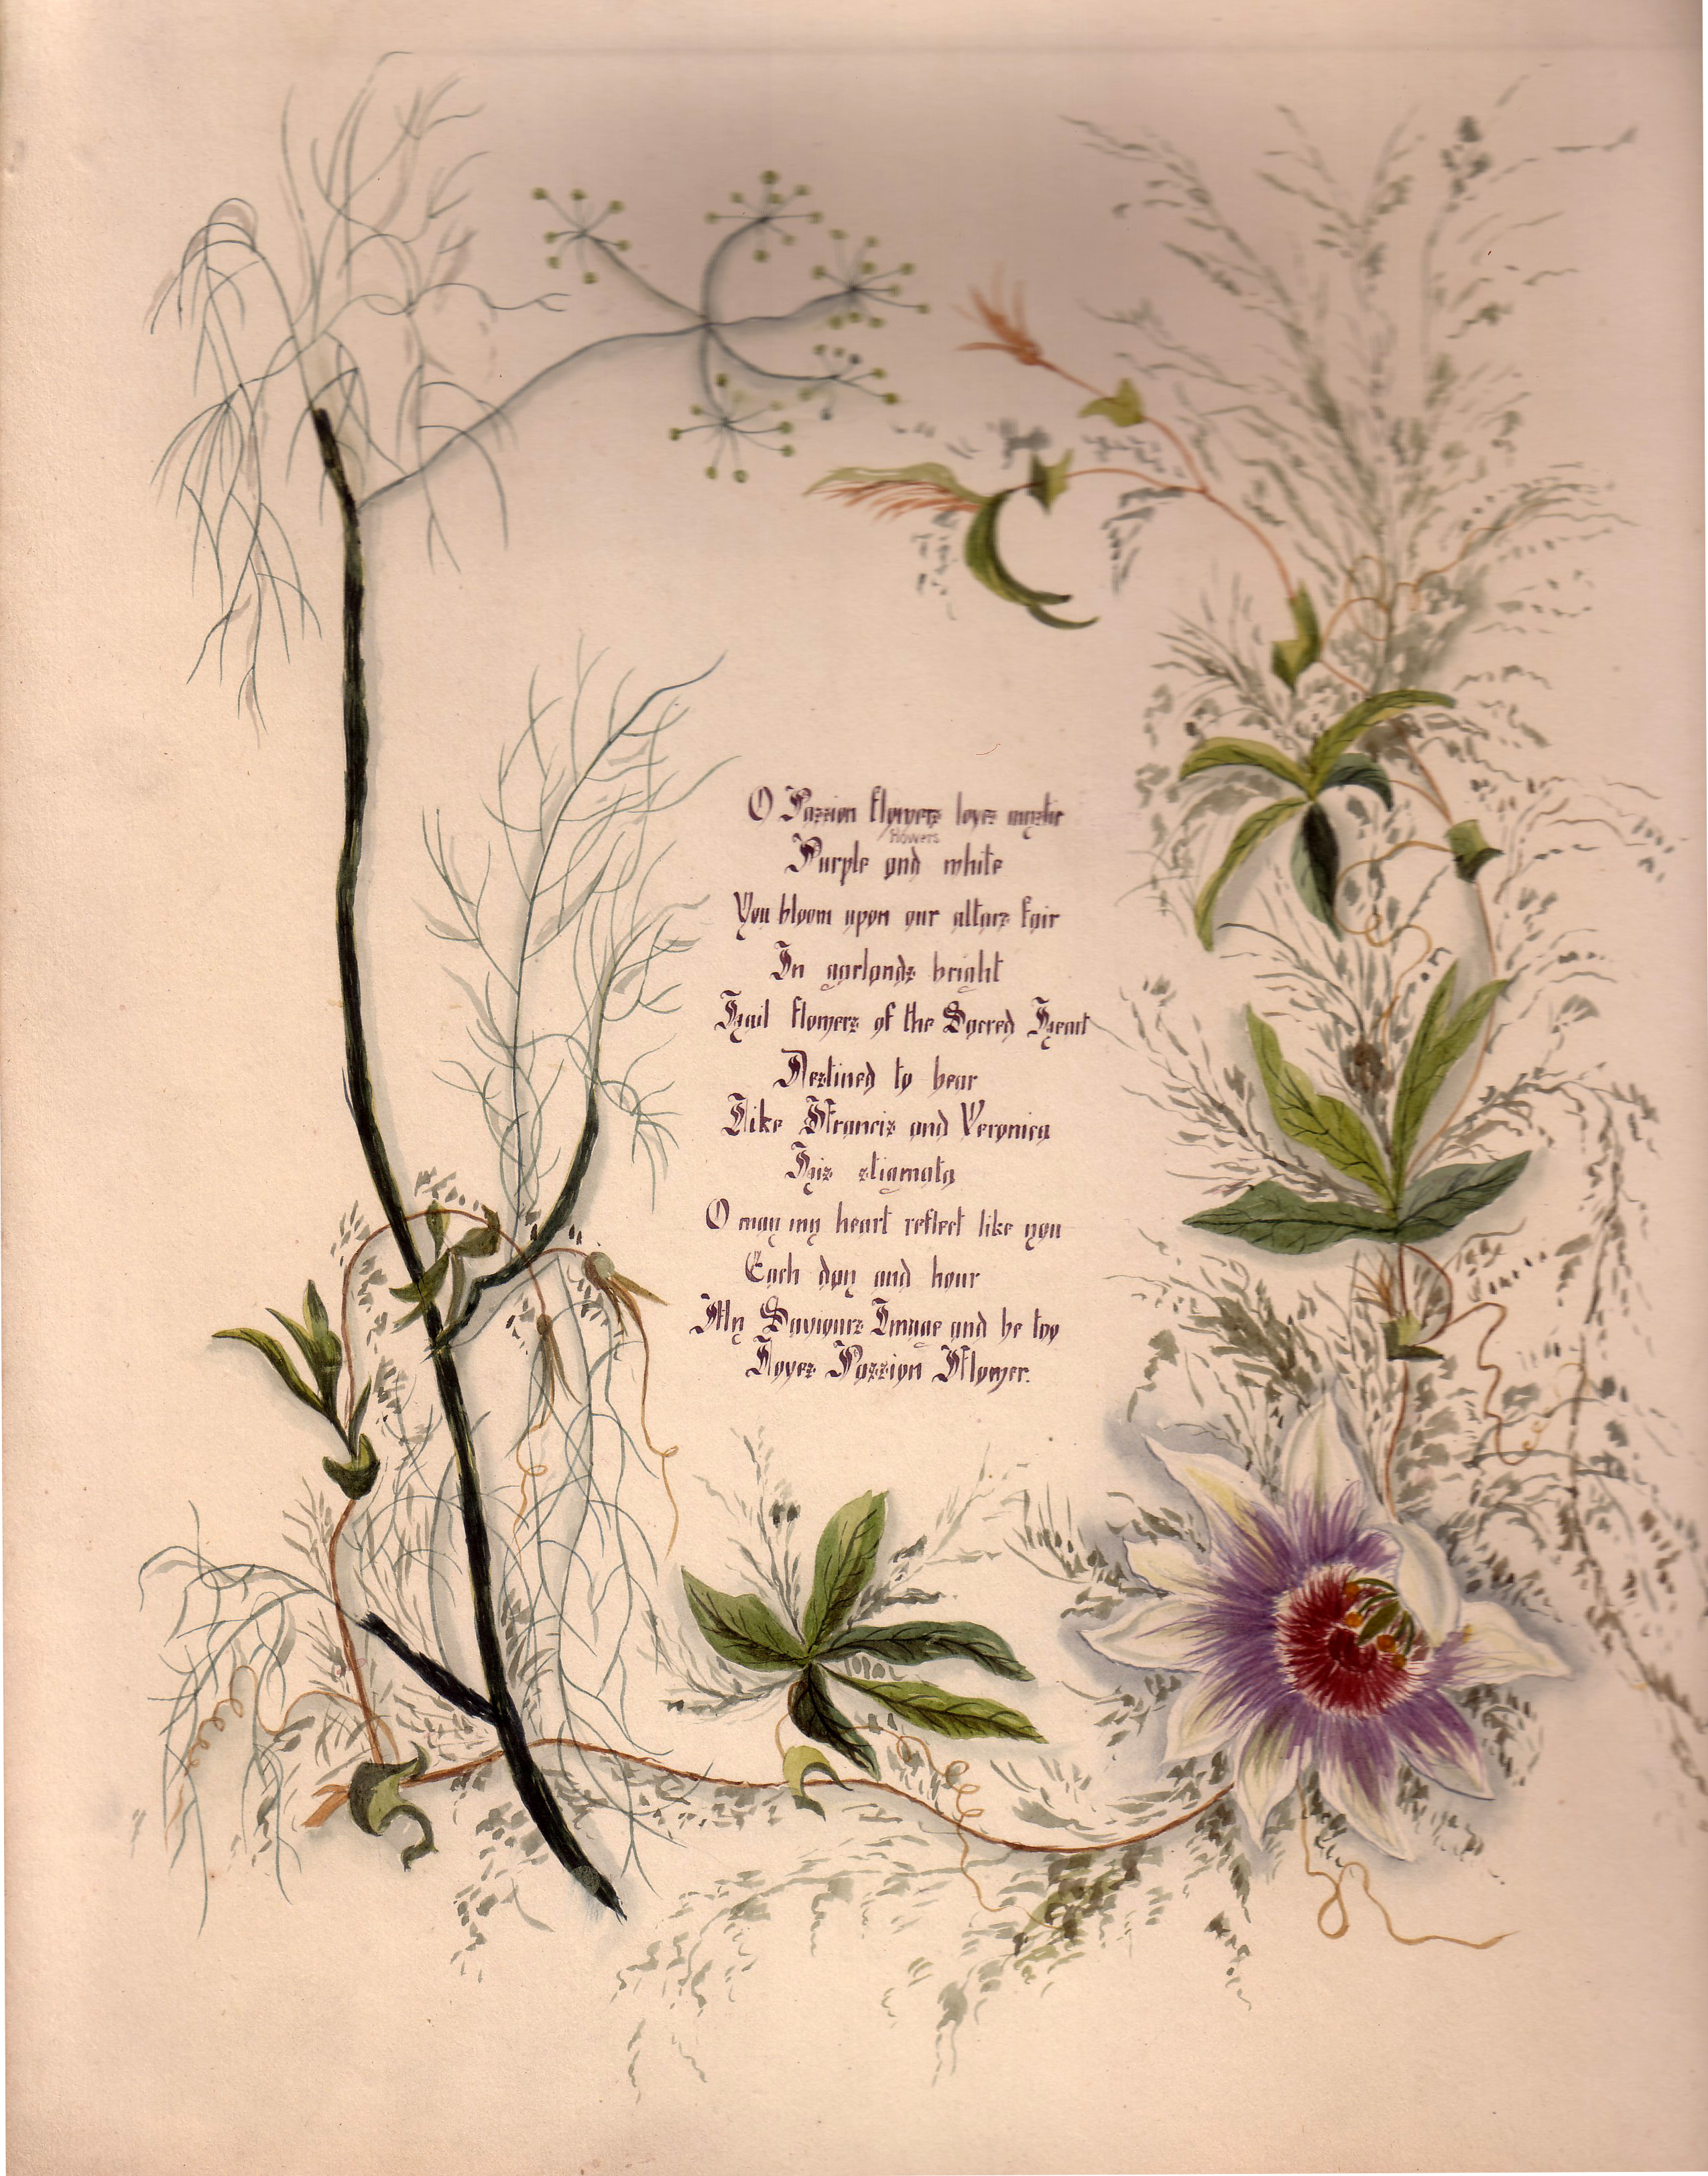 O Passion flowers loves mystic
flowers
Purple and white
You bloom upon our altars fair
In garlands bright
Hail flowers of the Sacred Heart
Destined to bear
Like Francis and Veronica
His stigmata
O may my heart reflect like you
Each day and hour
My Saviours Image and be too
Loves Passion Flower.